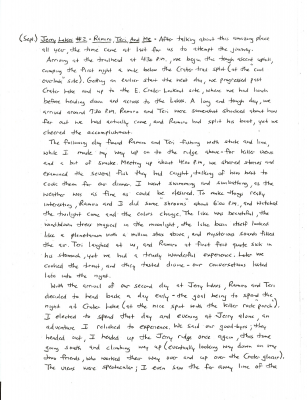 (Sept.) Jerry Lakes #2 - Ramiro, Teri, And Me - After talking about this amazing place
all year, the time came at last for us to attempt the journey.
Arriving at the trailhead at 4:30 P.M., we began the tough ascend uphill,
camping the first night a mile below the Crater trail split (at the cool
overlook side). Getting an earlier start the next day, we progressed past
Crater Lake and up to the E. Crater Lookout side, where we had lunch
before heading down and across to the Lakes. A long and tough day, we
arrived around 7:00 P.M. Ramiro and Teri were somewhat shocked about how
far out we had actually come, and Ramiro had split his boot, yet we
cheered the accomplishment.
The following day found Ramiro and Teri fishing with stick and line,
while I made my way up on to the ridge above for killer views
and a bit of smoke. Meeting up about 4:00 P.M., we shared stories and
examined the several fish they had caught, talking of how best to
cook them for our dinner. I went swimming and sunbathing, as the
weather was as fine as could be desired. To make things really
interesting, Ramiro and I did some "shrooms" about 6:00 P.M., and watched
the twilight come and the colors change. The lake was beautiful, the
mountains
in the moonlight, the lake basin itself looked
like a planetarium with a million stars above, and mysterious sounds filled
the air. Teri laughed at us, and Ramiro at first felt quite sick in
his stomach, yet we had a truly wonderful experience. Later we
cooked the trout, and they tasted divine - our conversations lasted
late into the night.
With the arrival of our second day at Jerry Lakes, Ramiro and Teri
decided to head back a day early - the goal being to spend the
night at Crater Lake (at the nice spot with the killer rock porch).
I elected to spend that day and evening at Jerry alone, an
adventure I relished to experience. We said our good-byes; they
headed out, I headed up the Jerry ridge once again, this time
going south and climbing way up (eventually looking way down on my
dear friends, who worked their way over and up over the Crater glacier).
The views were spectacular; I even saw the far away line of the